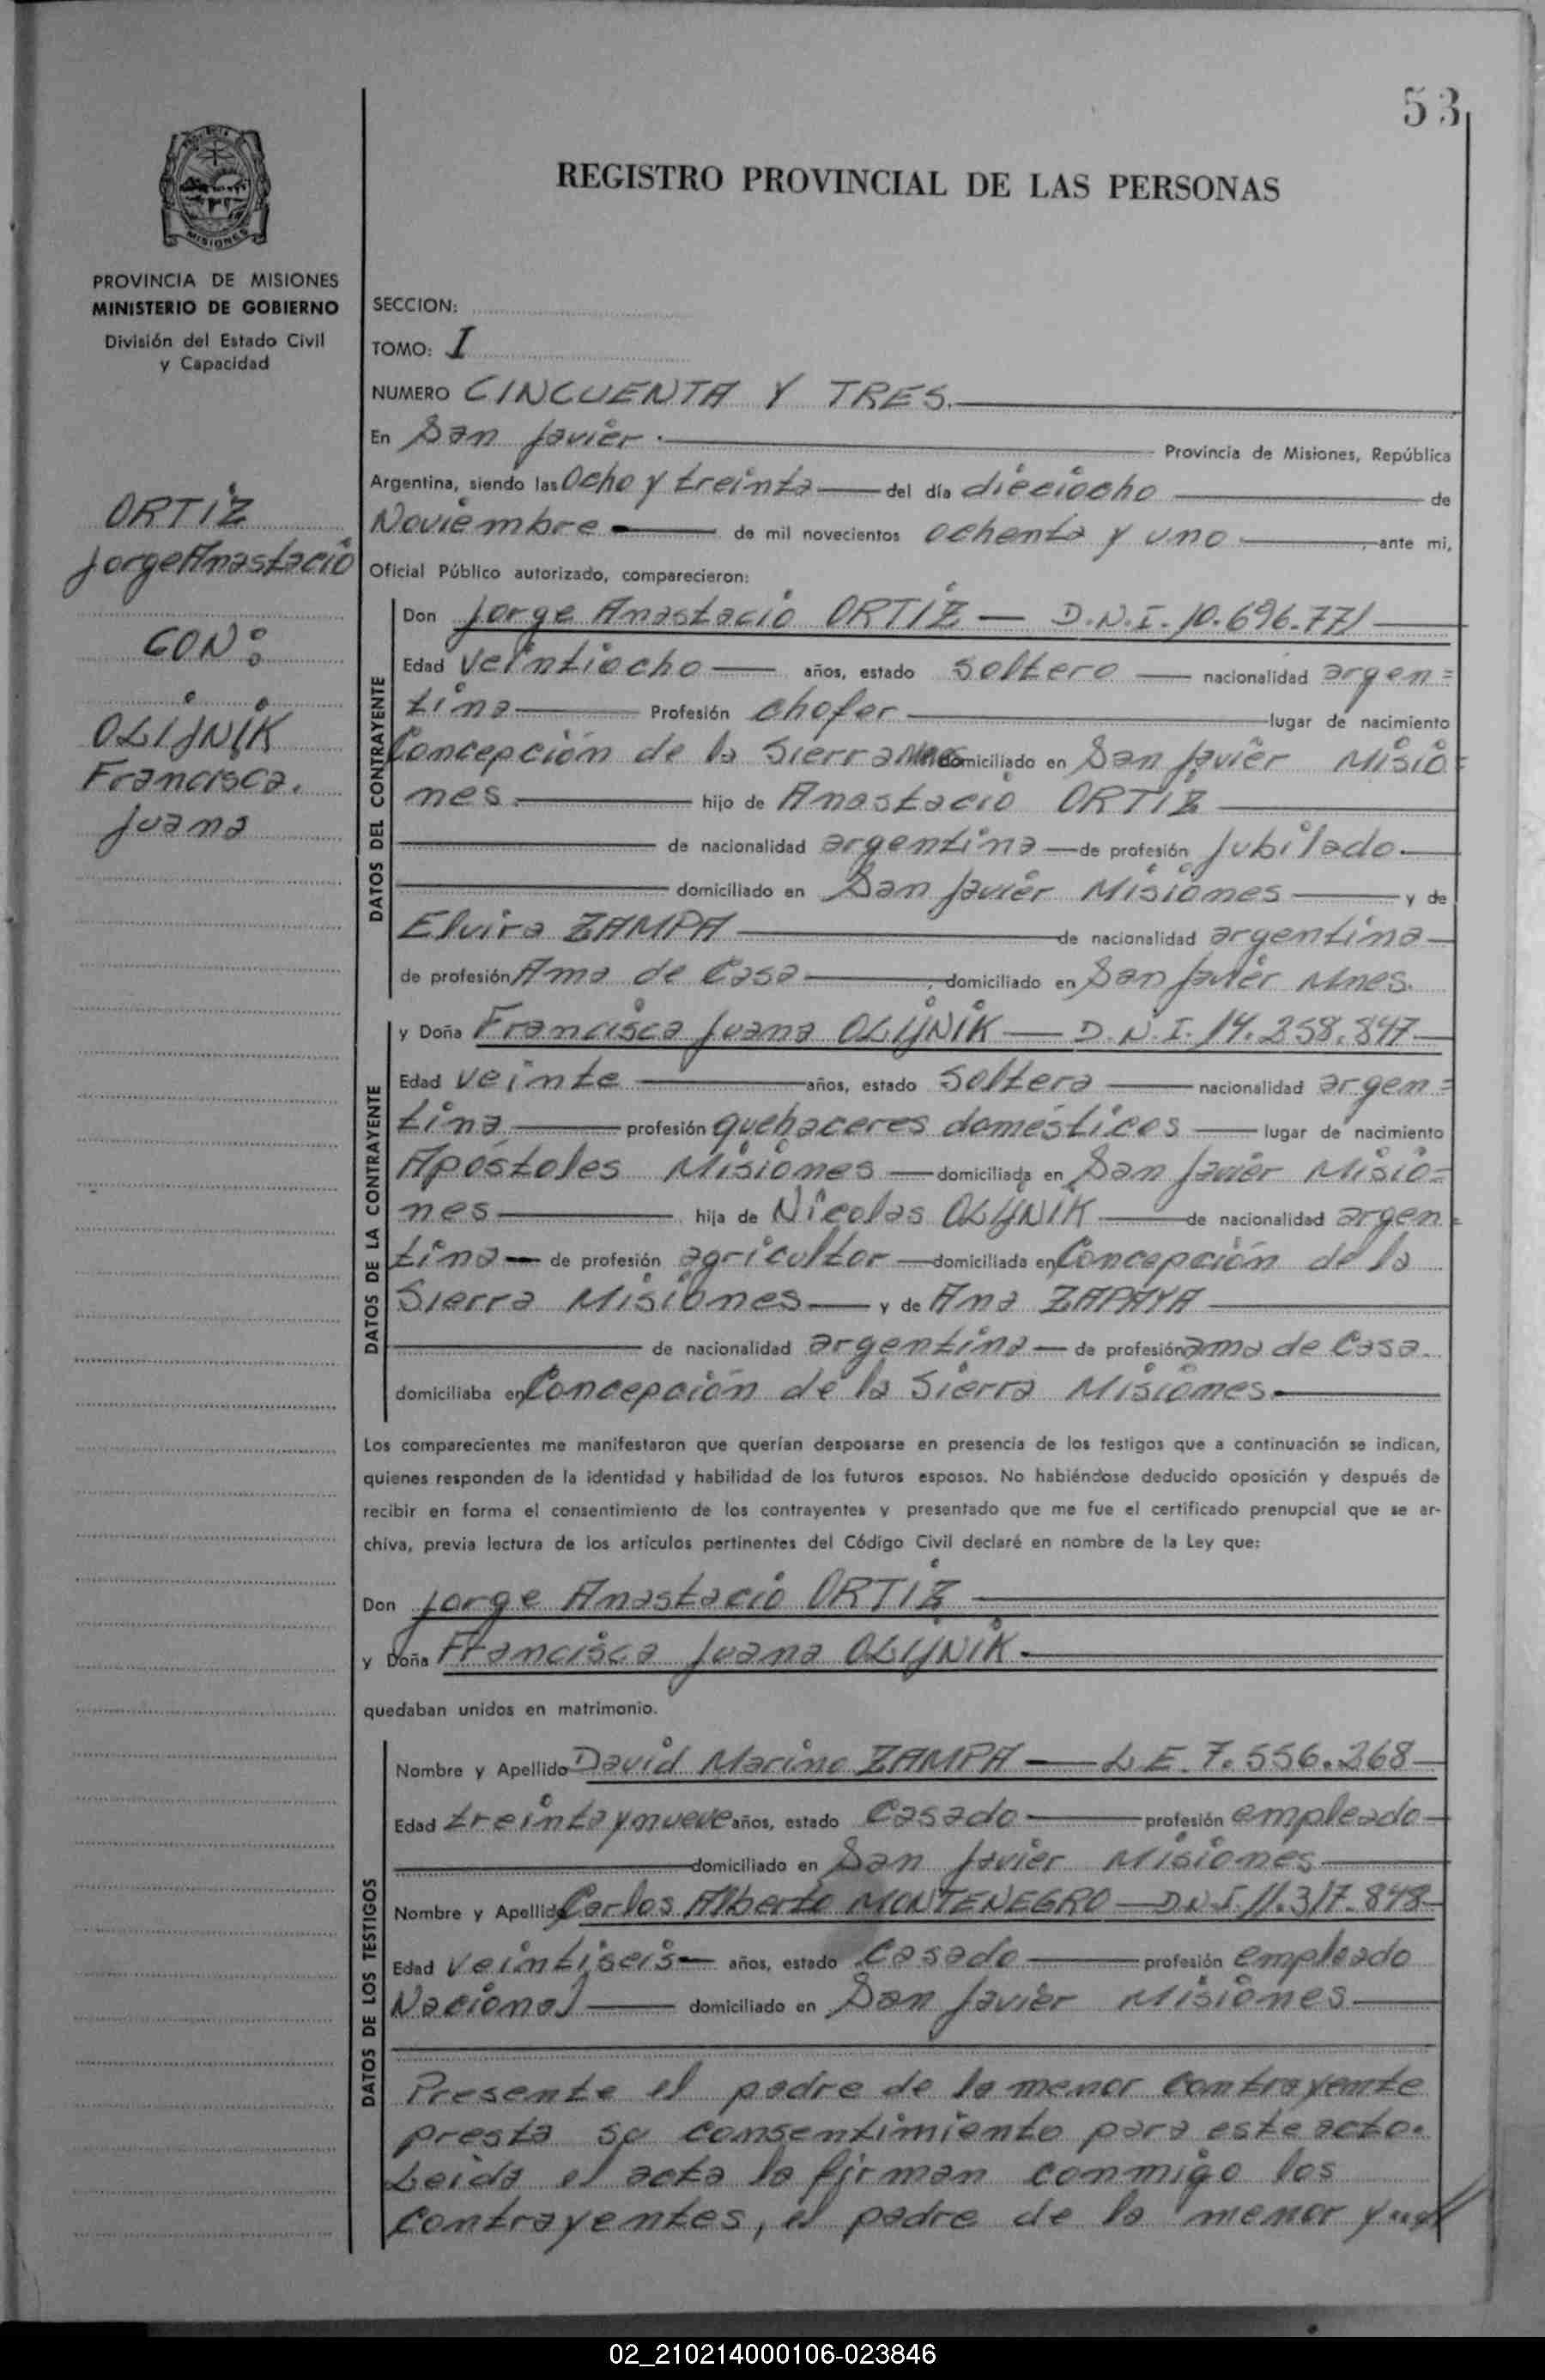 53
REGISTRO PROVINCIAL DE LAS PERSONAS
MISIONES
PROVINCIA DE MISIONES
MINISTERIO DE GOBIERNO
División del Estado Civil
y Capacidad
ORTIZ
Jorge Anastacio
CON:
OLIJNIK
Francisca.
Juana
SECCION:
TOMO: I
NUMERO CINCUENTA Y TRES.
En San Javier. Provincia de Misiones, República
Argentina, siendo las Ocho y treinta del día dieciocho de
Noviembre de mil novecientos ochenta y uno ante mi,
Oficial Público autorizado, comparecieron:
DATOS DEL CONTRAYENTE
Don Jorge Anastacio ORTIZ — D.N.I. 10.696.771
Edad veintiocho años, estado soltero nacionalidad argen=
tina Profesión chofer lugar de nacimiento
Concepción de la Sierra Mnes domiciliado en San Javier Misio=
nes. hijo de Anastacio ORTIZ
de nacionalidad argentina de profesión Jubilado.
domiciliado en San Javier Misiones y de
Elvira ZAMPA de nacionalidad argentina
de profesión Ama de Casa domiciliado en San Javier Mnes.
DATOS DE LA CONTRAYENTE
y Doña Francisca Juana OLIJNIK — D.N.I. 14.258.847
Edad veinte años, estado Soltera nacionalidad argen=
tina profesión quehaceres domésticos lugar de nacimiento
Apóstoles Misiones domiciliada en San Javier Misio=
nes hija de Nicolas OLIJNIK de nacionalidad argen=
tina de profesión agricultor domiciliada en Concepción de la
Sierra Misiones y de Ana ZAPAYA
de nacionalidad argentina de profesión ama de Casa.
domiciliaba en Concepción de la Sierra Misiones.
Los comparecientes me manifestaron que querían desposarse en presencia de los testigos que a continuación se indican,
quienes responden de la identidad y habilidad de los futuros esposos. No habiéndose deducido oposición y después de
recibir en forma el consentimiento de los contrayentes y presentado que me fue el certificado prenupcial que se ar-
chiva, previa lectura de los artículos pertinentes del Código Civil declaré en nombre de la Ley que:
Don Jorge Anastacio ORTIZ
y Doña Francisca Juana OLIJNIK.
quedaban unidos en matrimonio.
DATOS DE LOS TESTIGOS
Nombre y Apellido David Marino ZAMPA — L.E. 7.556.268
Edad treinta y nueve años, estado Casado profesión empleado
domiciliado en San Javier Misiones
Nombre y Apellido Carlos Alberto MONTENEGRO — D.N.I. 11.317.848
Edad veintiseis años, estado Casado profesión empleado
Nacional domiciliado en San Javier Misiones
Presente el padre de la menor contrayente
presta su consentimiento para este acto.
Leida el acta la firman conmigo los
contrayentes, el padre de la menor y
02_210214000106-023846